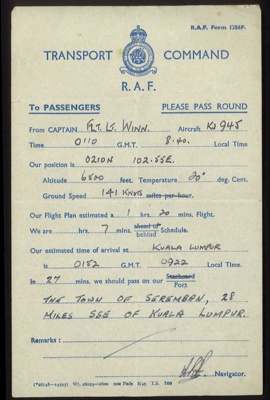 R.A.F. Form 1256P.
TRANSPORT COMMAND
R.A.F.
To PASSENGERS PLEASE PASS ROUND
From CAPTAIN FLT. LT. WINN. Aircraft KJ 945
Time 0110 G.M.T. 8.40. Local Time
Our position is 0210N 102.55E.
Altitude 6500 feet. Temperature 20° deg. Cent.
Ground Speed 141 KNOTS miles per hour.
Our Flight Plan estimated a 1 hrs. 20 mins. Flight.
We are hrs. 7 mins. ahead of behind Schedule.
Our estimated time of arrival at KUALA LUMPUR
is 0152 G.M.T. 0922 Local Time.
In 27 mins. we should pass on our Starboard Port
THE TOWN OF SEREMBAN, 28
MILES SSE OF KUALA LUMPUR.
Remarks :
Navigator.